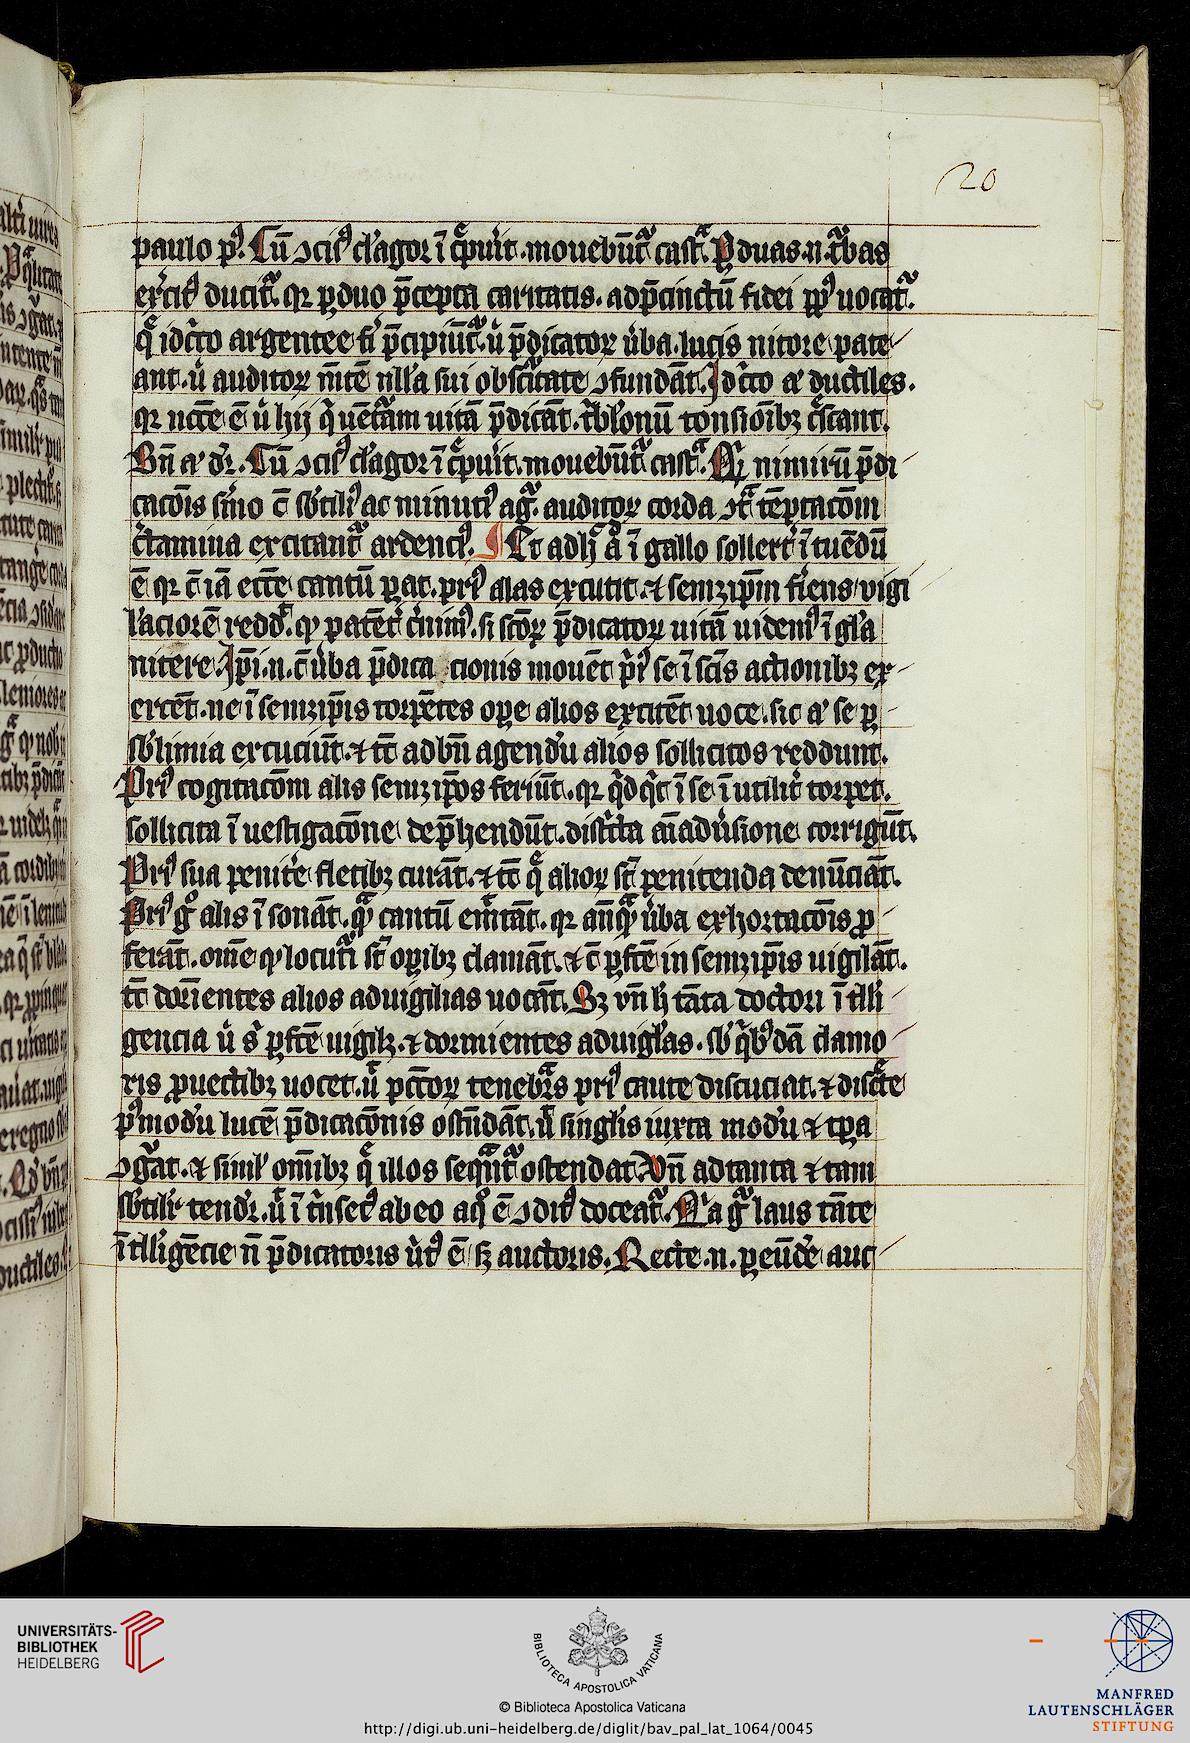 20
paulo pꝰ. Cū ɔcisꝰ cl̓agor ī c̄puͥt. mouebūt᷑ castͣ. Ꝑ duas .n. tͮbas
ex̓citꝰ ducit᷑. qꝛ ꝑ duo p̄cepta caritatis. ad p̄cinctū fidei ppꝉs uocat᷑.
q̄ idc̓co argentee fi͛ p̄cipiūt᷑. ut̓ p̄dicatoꝝ ūba. lucis nitore pate
ant. ut̓ auditoꝝ m̄tē nll̓a sui obsc̓itate ɔfundāt. Idc̓co ⁊ ductiles.
qꝛ ē ut̓ hii q̓ uētᷓam uitā p̄dicāt. tͥbl̓onū tonsioībꝫ c̓scant.
Bn̄ ⁊ dr̄. Cū ɔcisꝰ cl̓agor ī c̄puͥt. mouebūt᷑ cast͛. Qꝛ nimirū p̄di
cacōis s̓mo c̄ sbtiliꝰ ac minutiꝰ agit᷑. auditoꝝ corda ɔt͛ tēptacōm
c̓tamina excitant᷑ ardenciꝰ. ¶ Et adhͨ a ī gallo sollert̓ ītuēdū
ē qꝛ c̄ iā ecc̄e cantū ꝑat. priꝰ alas excutit. ⁊ semꝫip̄m fi͛ens / vigi
l̓aciorē redd͛. qꝫ patēt̓ c̓nimꝰ. si sc̄oꝝ p̄dicatoꝝ uitā uidemꝰ īgl̓a
nitere. Ip̄i .n. c̄ ūba p̄dica cionis mouēt pͥꝰ se ī sc̄is actionibꝫ ex
ercēt. ne ī semꝫip̄is torpētes oꝑe alios excitēt uoce. sic ⁊ se ꝑ
sblimia excuciūt. ⁊ tc̄ ad bn̄ agendu̓ alios sollicitos reddunt.
Priꝰ cogitacōm alis semꝫip̄os feriūt. qꝛ qͥdqͥt ī se īutilit̓ torpet.
sollicita īuestigacōne dep̄hendūt. distͥcta aīadu̓sione corrigūt.
Priꝰ sua penite̓ fletibꝫ curāt. ⁊ tc̄ q̄ alioꝝ st̄ penitenda denūciāt.
Priꝰ g̊ alis īsonāt. qᷓ cantū emitāt. qꝛ an̄qᷓ ūba exhortacōis ꝓ
ferāt. om̄e qꝫ locuturi st̄ oꝑibꝫ clamāt. ⁊ c̄ ꝑfc̄e in semꝫip̄is uigilāt.
tc̄ dorm̄ientes alios ad uigilias uocāt. Sꝫ vn̄ h̓ tāta doctori ītlli
gencia ut̓ s̓ ꝑfc̄e uigilꝫ. ⁊ dormientes ad uigl̓as. sb qͥbꝰdā clamo
ris ꝓuectibꝫ uocet. ut̓ pcc̄oꝝ tenebͣs priꝰ caute discuciat. ⁊ discͤte
pꝰmodu̓ lucē p̄dicacōnis oste̓dat. ut̓ singl̓is iuxta modu̓ ⁊ tꝑa
ɔg̓at. ⁊ simul̓ om̄ibꝫ q̄ illos seqᷓnt᷑ ostendat. Vn̄ ad tanta ⁊ tam
sbtilit̓ tendr̓. ab eo a qͦ ē ɔditꝰ doceat᷑. Qͥa g̊ laus tāte
ītlligēcie n̄ p̄dicatoris ut̓tꝰ ē sꝫ auctoris. Recte .n. ꝑ eūde̓ auc
UNIVERSITÄTS-
BIBLIOTHEK
HEIDELBERG
BIBLIOTECA APOSTOLICA VATICANA
© Biblioteca Apostolica Vaticana
http://digi.ub.uni-heidelberg.de/diglit/bav_pal_lat_1064/0045
MANFRED
LAUTENSCHLÄGER
STIFTUNG